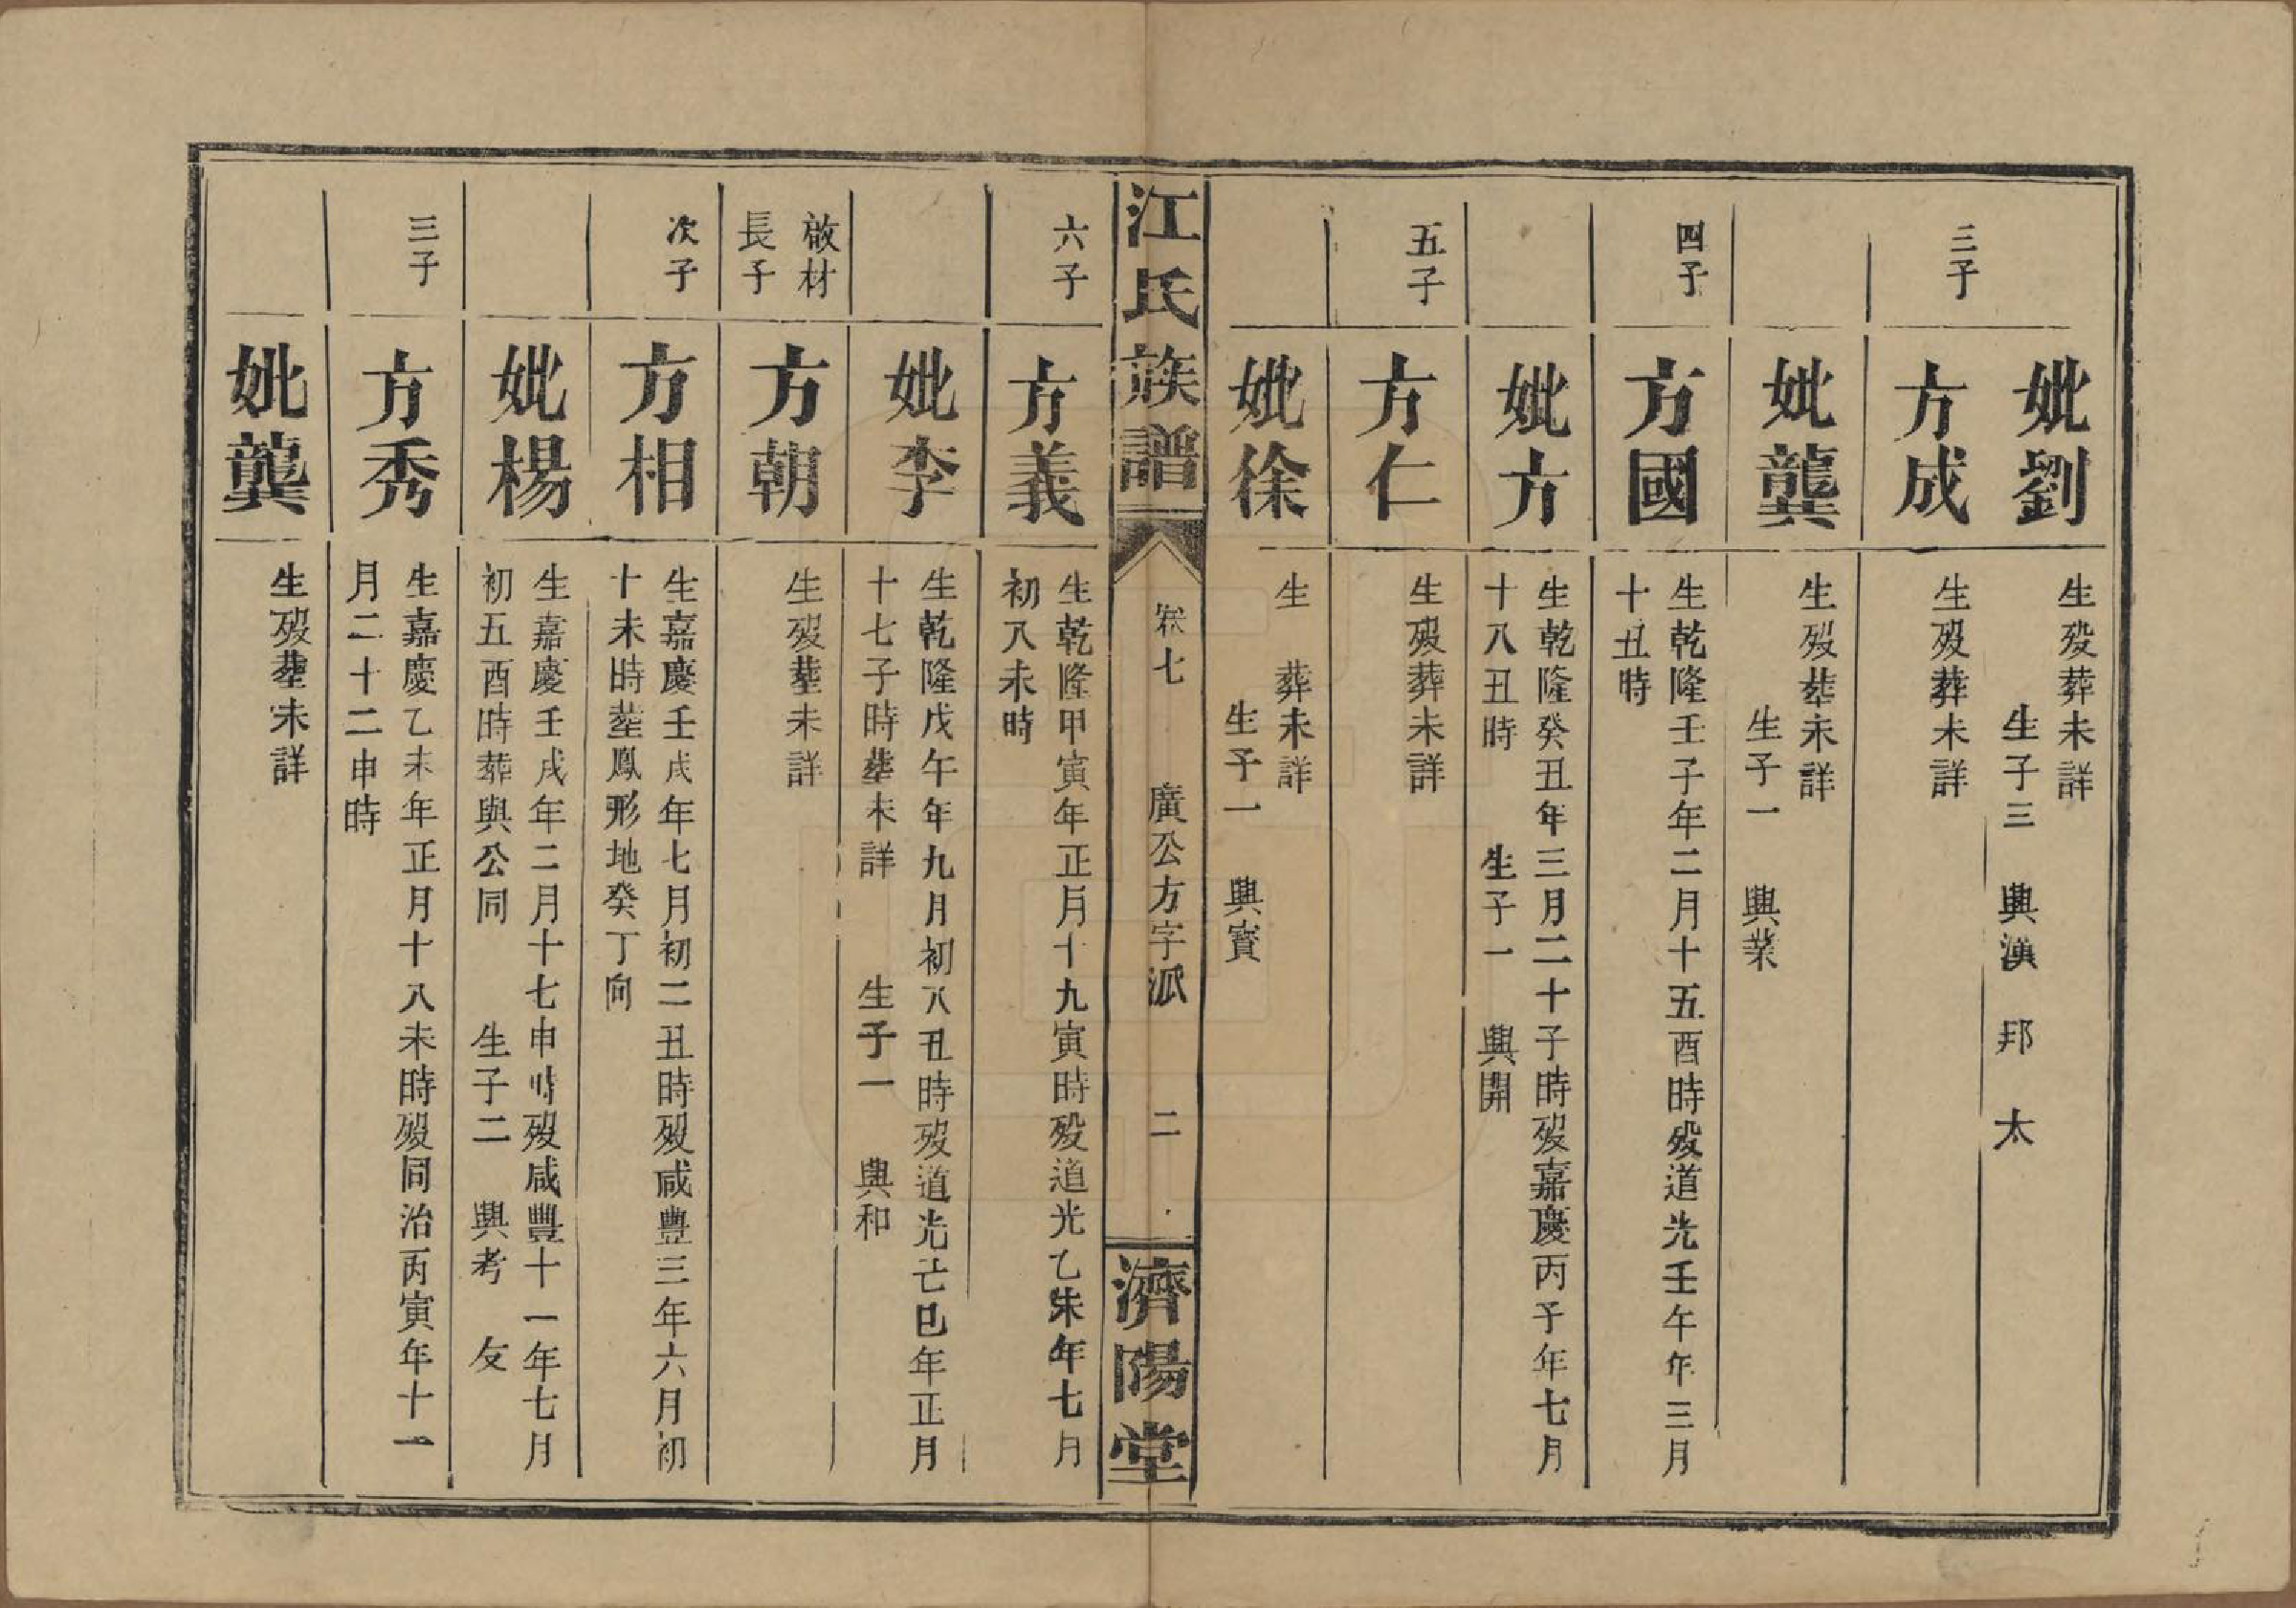 妣劉
生歿葬未詳
生子三 興漢 邦 太
三子
方成
生歿葬未詳
妣龔
生歿塟未詳
生子一 興業
四子
方國
生乾隆壬子年二月十五酉時歿道光壬午年三月
十丑時
妣方
生乾隆癸丑年三月二十子時歿嘉慶丙子年七月
十八丑時 生子一 興開
五子
方仁
生歿葬未詳
妣徐
生 葬未詳
生子一 興寳
江氏族譜
卷七 廣公方字派 二
濟陽堂
六子
方義
生乾隆甲寅年正月十九寅時歿道光乙未年七月
初八未時
妣李
生乾隆戊午年九月初八丑時歿道光亡巳年正月
十七子時塟未詳 生子一 興和
啟材
長子
方朝
生歿塟未詳
次子
方相
生嘉慶壬戌年七月初二丑時歿咸豐三年六月初
十未時塟鳳形地癸丁向
妣楊
生嘉慶壬戌年二月十七申時歿咸豐十一年七月
初五酉時葬與公同 生子二 興考 友
三子
方秀
生嘉慶乙未年正月十八未時歿同治丙寅年十一
月二十二申時
妣龔
生歿塟未詳